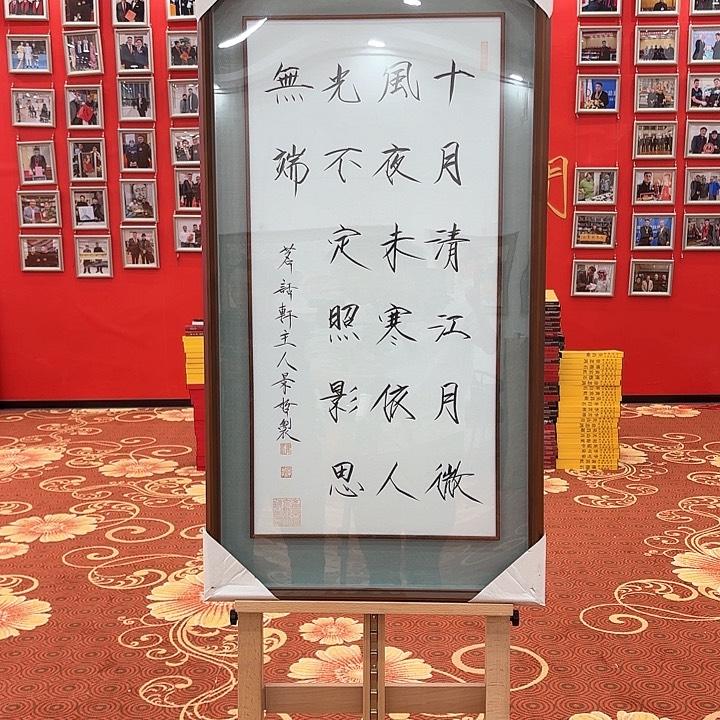 十月清江月微
風夜未寒依人
光不定照影思
無端
茗話軒主人景
製